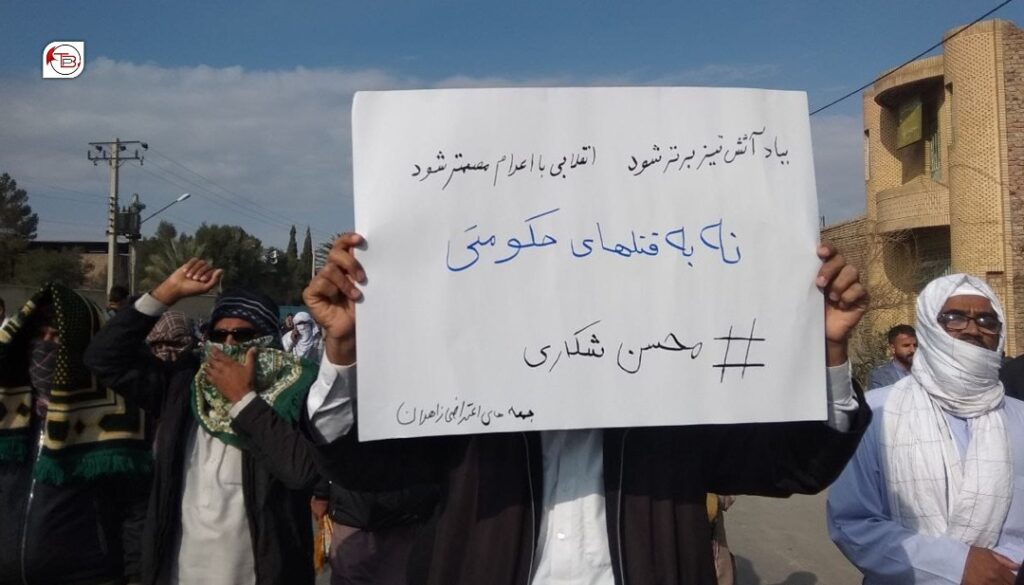 بباد آتش تیز برتر شود انقلابی با اعدام مصمتر شود
نه به قتلهای حکومتی
#محسن شکاری
جمعه های اعتراضی زاهدان